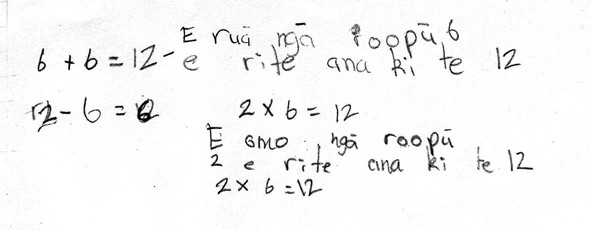 6 + 6 = 12 - E rua ngā roopū 6
e rite ana ki te 12
12 - 6 = 6
2 x 6 = 12
E ono ngā roopū
2 e rite ana ki te 12
2 x 6 = 12